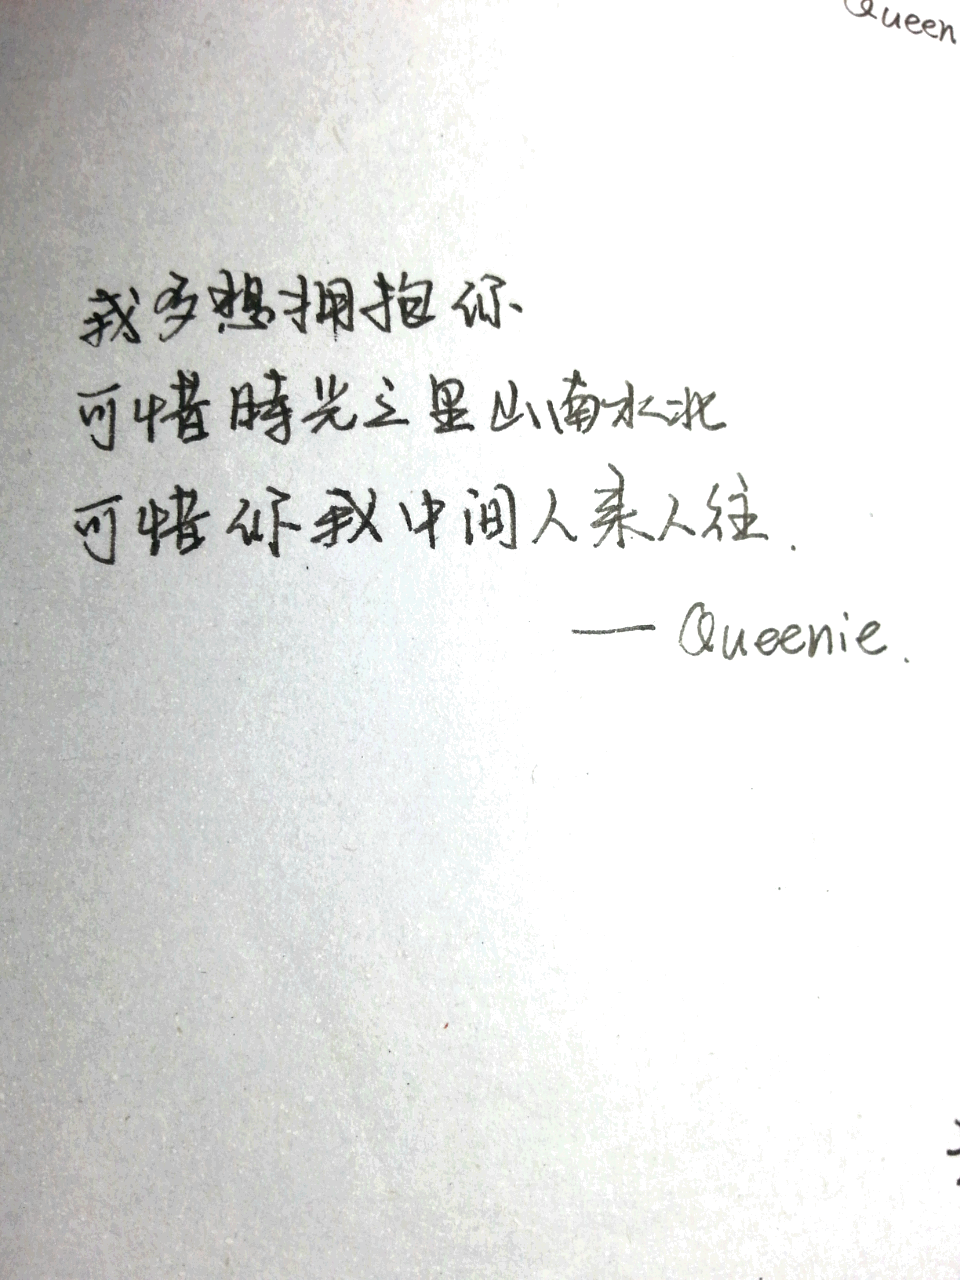 Queen
我多想拥抱你
可惜時光之里山南水北
可惜你我中间人来人往.
— Queenie.